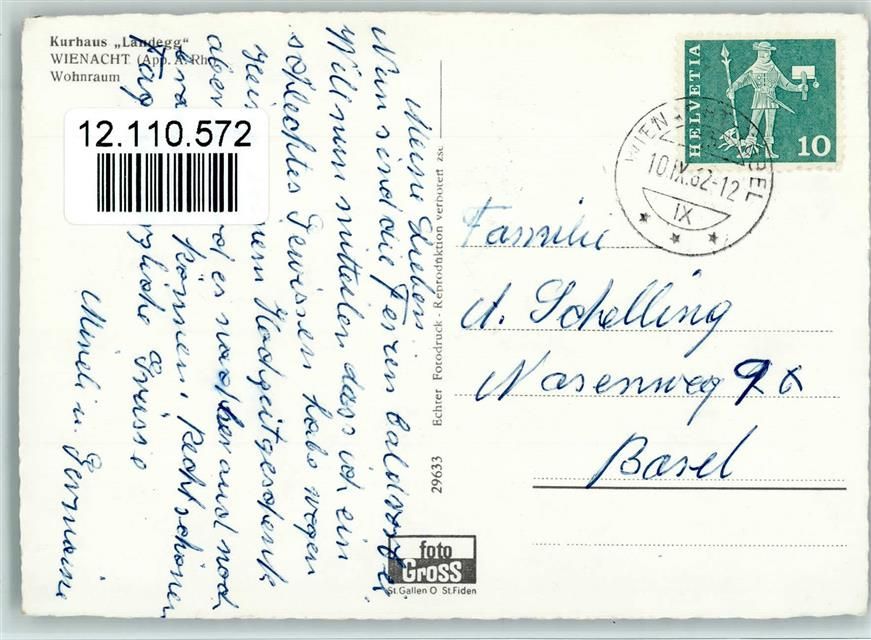 Kurhaus „Landegg"
WIENACHT (App. A.Rh.)
Wohnraum
12.110.572
Meine Lieben
Nun sind die Ferien bald vorbei
Will nun mitteilen dass ich ein
schlechtes Gewissen habe wegen
Hochzeitgeschenk
aber es nachher auch noch
können. Recht schöne
Tag Grüsse
Mineli u. Germaine
29633 Echter Fotodruck - Reproduktion verboten
foto
GROSS
St.Gallen O St.Fiden
HELVETIA
10
WIEN
10.IX.62-12
IX
Familie
A. Schelling
Nasenweg
Basel